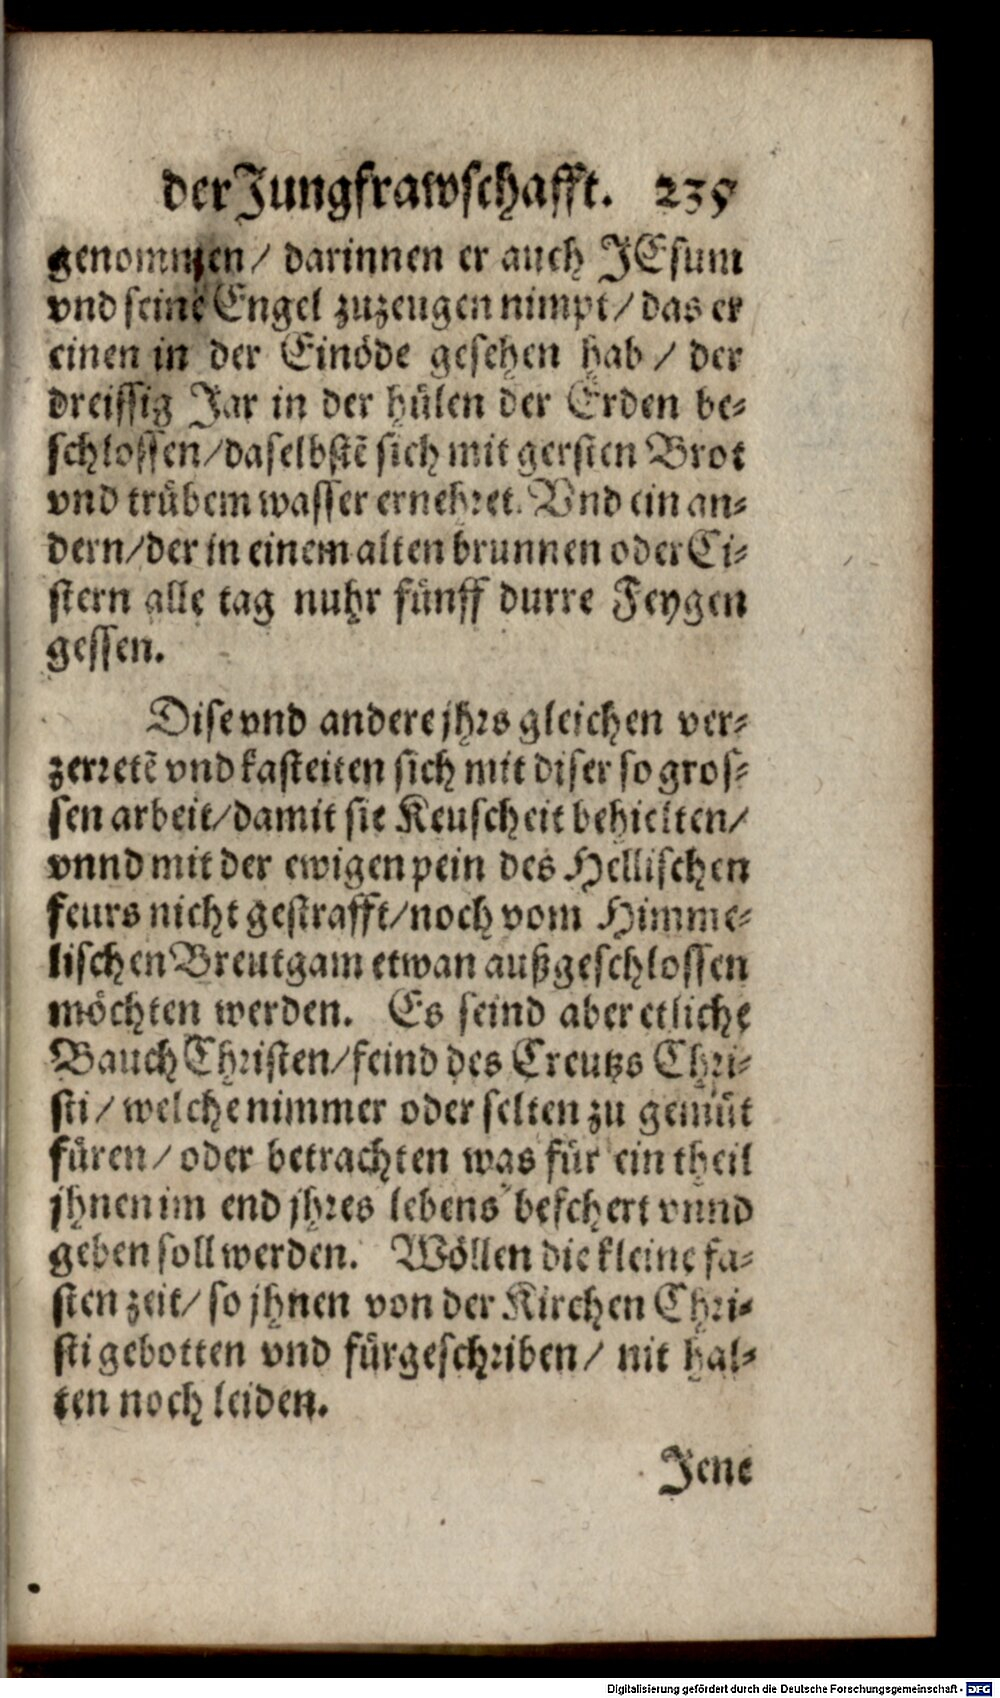 der Jungfrawschafft. 235
genommen / darinnen er auch JEsum
vnd seine Engel zuzeugen nimpt / das er
einen in der Einöde gesehen hab / der
dreissig Jar in der hülen der Erden be-
schlossen / daselbstẽ sich mit gersten Brot
vnd trübem wasser ernehret. Vnd ein an-
dern / der in einem alten brunnen oder Ci-
stern alle tag nuhr fünff durre Feygen
gessen.
Dise vnd andere jhrs gleichen ver-
zerretẽ vnd kasteiten sich mit diser so gros-
sen arbeit / damit sie Keuscheit behielten /
vnnd mit der ewigen pein des Hellischen
feurs nicht gestrafft / noch vom Himme-
lischen Breutgam etwan außgeschlossen
möchten werden. Es seind aber etliche
Bauch Christen / feind des Creutzs Chri-
sti / welche nimmer oder selten zu gemüt
füren / oder betrachten was für ein theil
jhnen im end jhres lebens beschert vnnd
geben soll werden. Wöllen die kleine fa-
sten zeit / so jhnen von der Kirchen Chri-
sti gebotten vnd fürgeschriben / nit hal-
ten noch leiden.
Jene
Digitalisierung gefördert durch die Deutsche Forschungsgemeinschaft - DFG